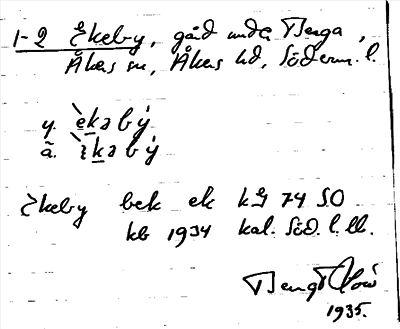 1-2 Ekeby, gård under Berga,
Åkers sn, Åkers hd, Söderm. l.
y. èkabý
ä. ìkabý
Ekeby bek ek kg 74 SO
kb 1934 kal. Söd. l. ll.
Bengt
1935.